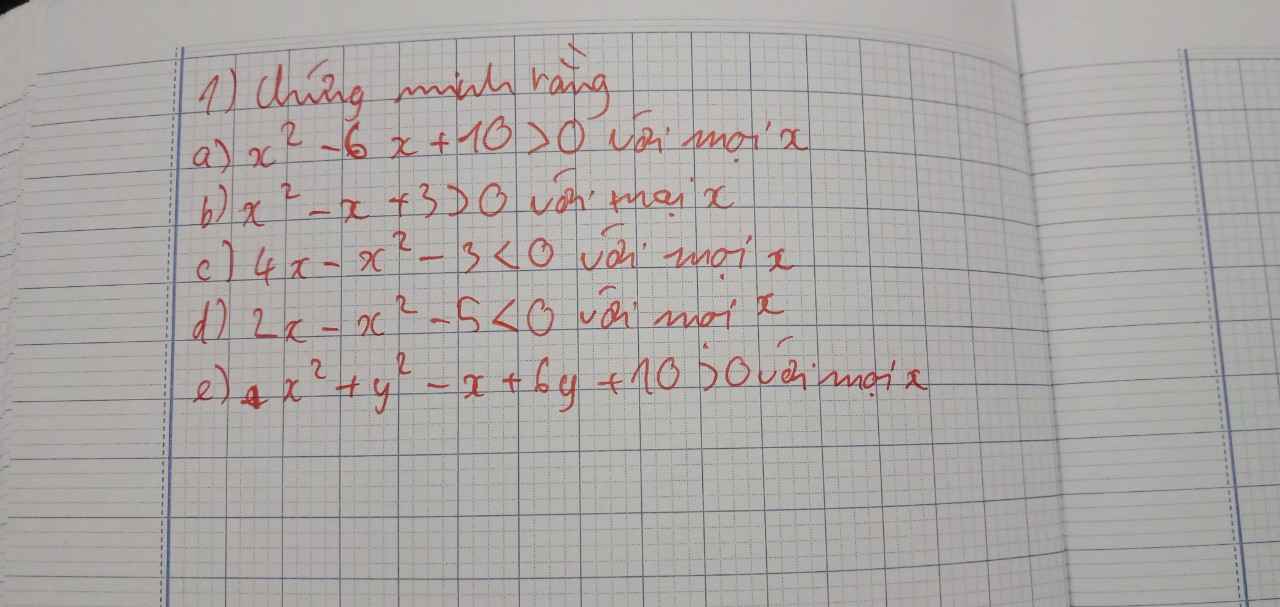 1) Chứng minh rằng
a) x² - 6x + 10 > 0 với mọi x
b) x² - x + 3 > 0 với mọi x
c) 4x - x² - 3 < 0 với mọi x
d) 2x - x² - 5 < 0 với mọi x
e) x² + y² - x + 6y + 10 > 0 với mọi x